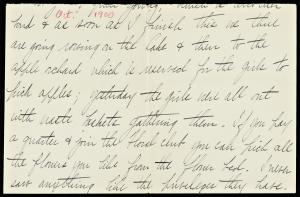 Oct. 1900
and as soon as I finish this we three
are going rowing on the lake & then to the
apple orchard which is reserved for the girls to
pick apples; yesterday the girls were all out
with baskets gathering them. If you pay
a quarter & join the Floral Club you can pick all
the flowers you like from the flower bed. I never
saw anything like the privileges they have.